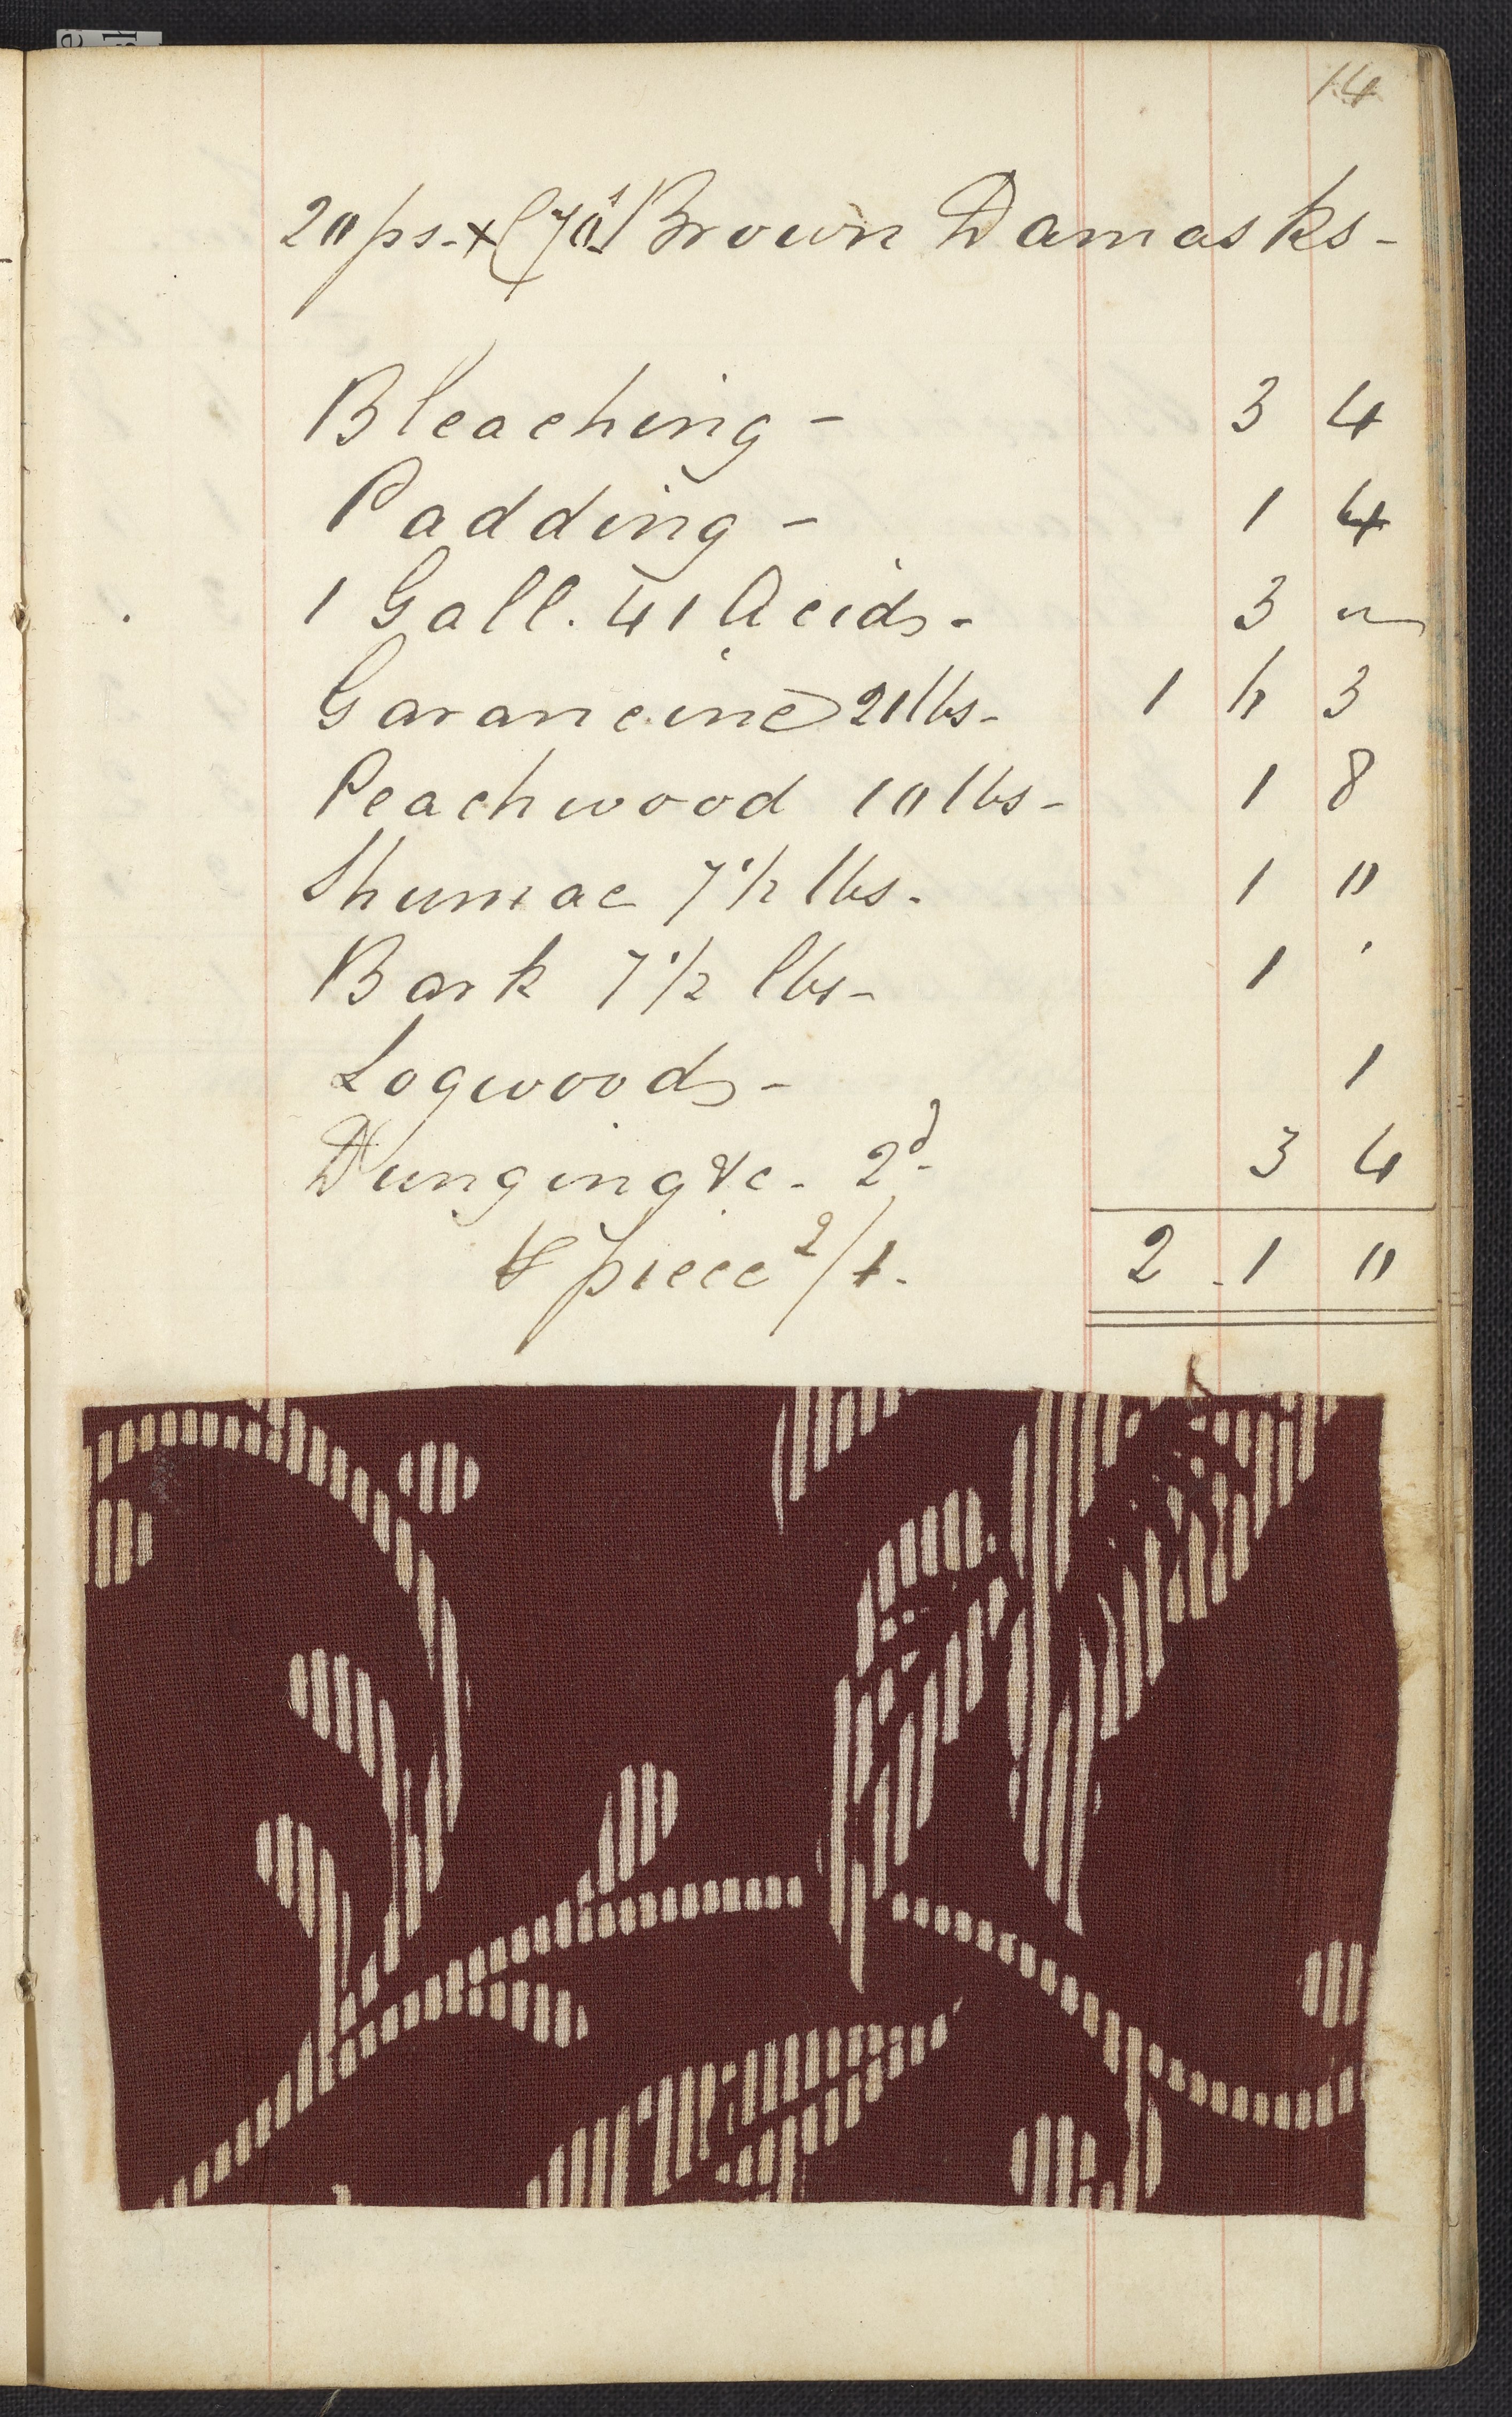 14
20 ps. x (70s) Brown Damasks -
Bleaching - 3 4
Padding - 1 4
1 Gall. 41 Acids - 3 "
Garancine 21 lbs - 1 6 3
Peachwood 10 lbs - 1 8
Shumac 7 1/2 lbs. 1 "
Bark 7 1/2 lbs - 1 '
Logwoods - 1
Dunging &c - 2d 3 4
℔ piece 2/1. 2 . 1 "